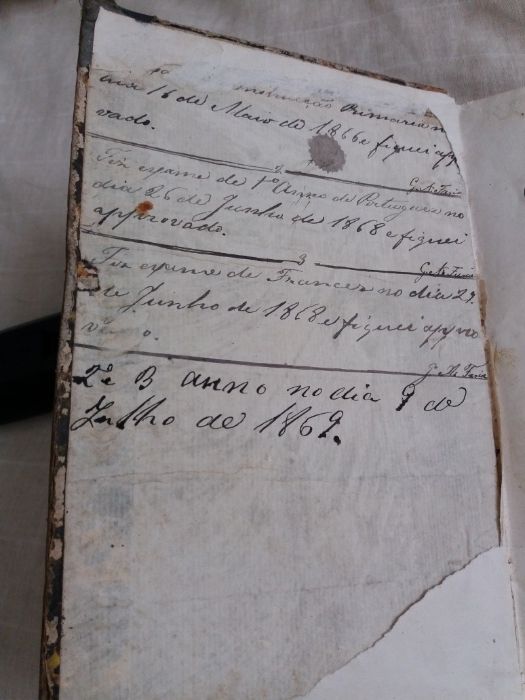 Instrucção Primaria n
dia 16 de Maio de 1866 e fiquei app
vado.
2
Fiz exame de 1º Anno de Portuguez no
dia 26 de Junho de 1868 e fiquei
approvado.
3
Fiz exame de Francez no dia 27
de Junho de 1868 e fiquei appro
2º e B anno no dia 9 de
Julho de 1869.